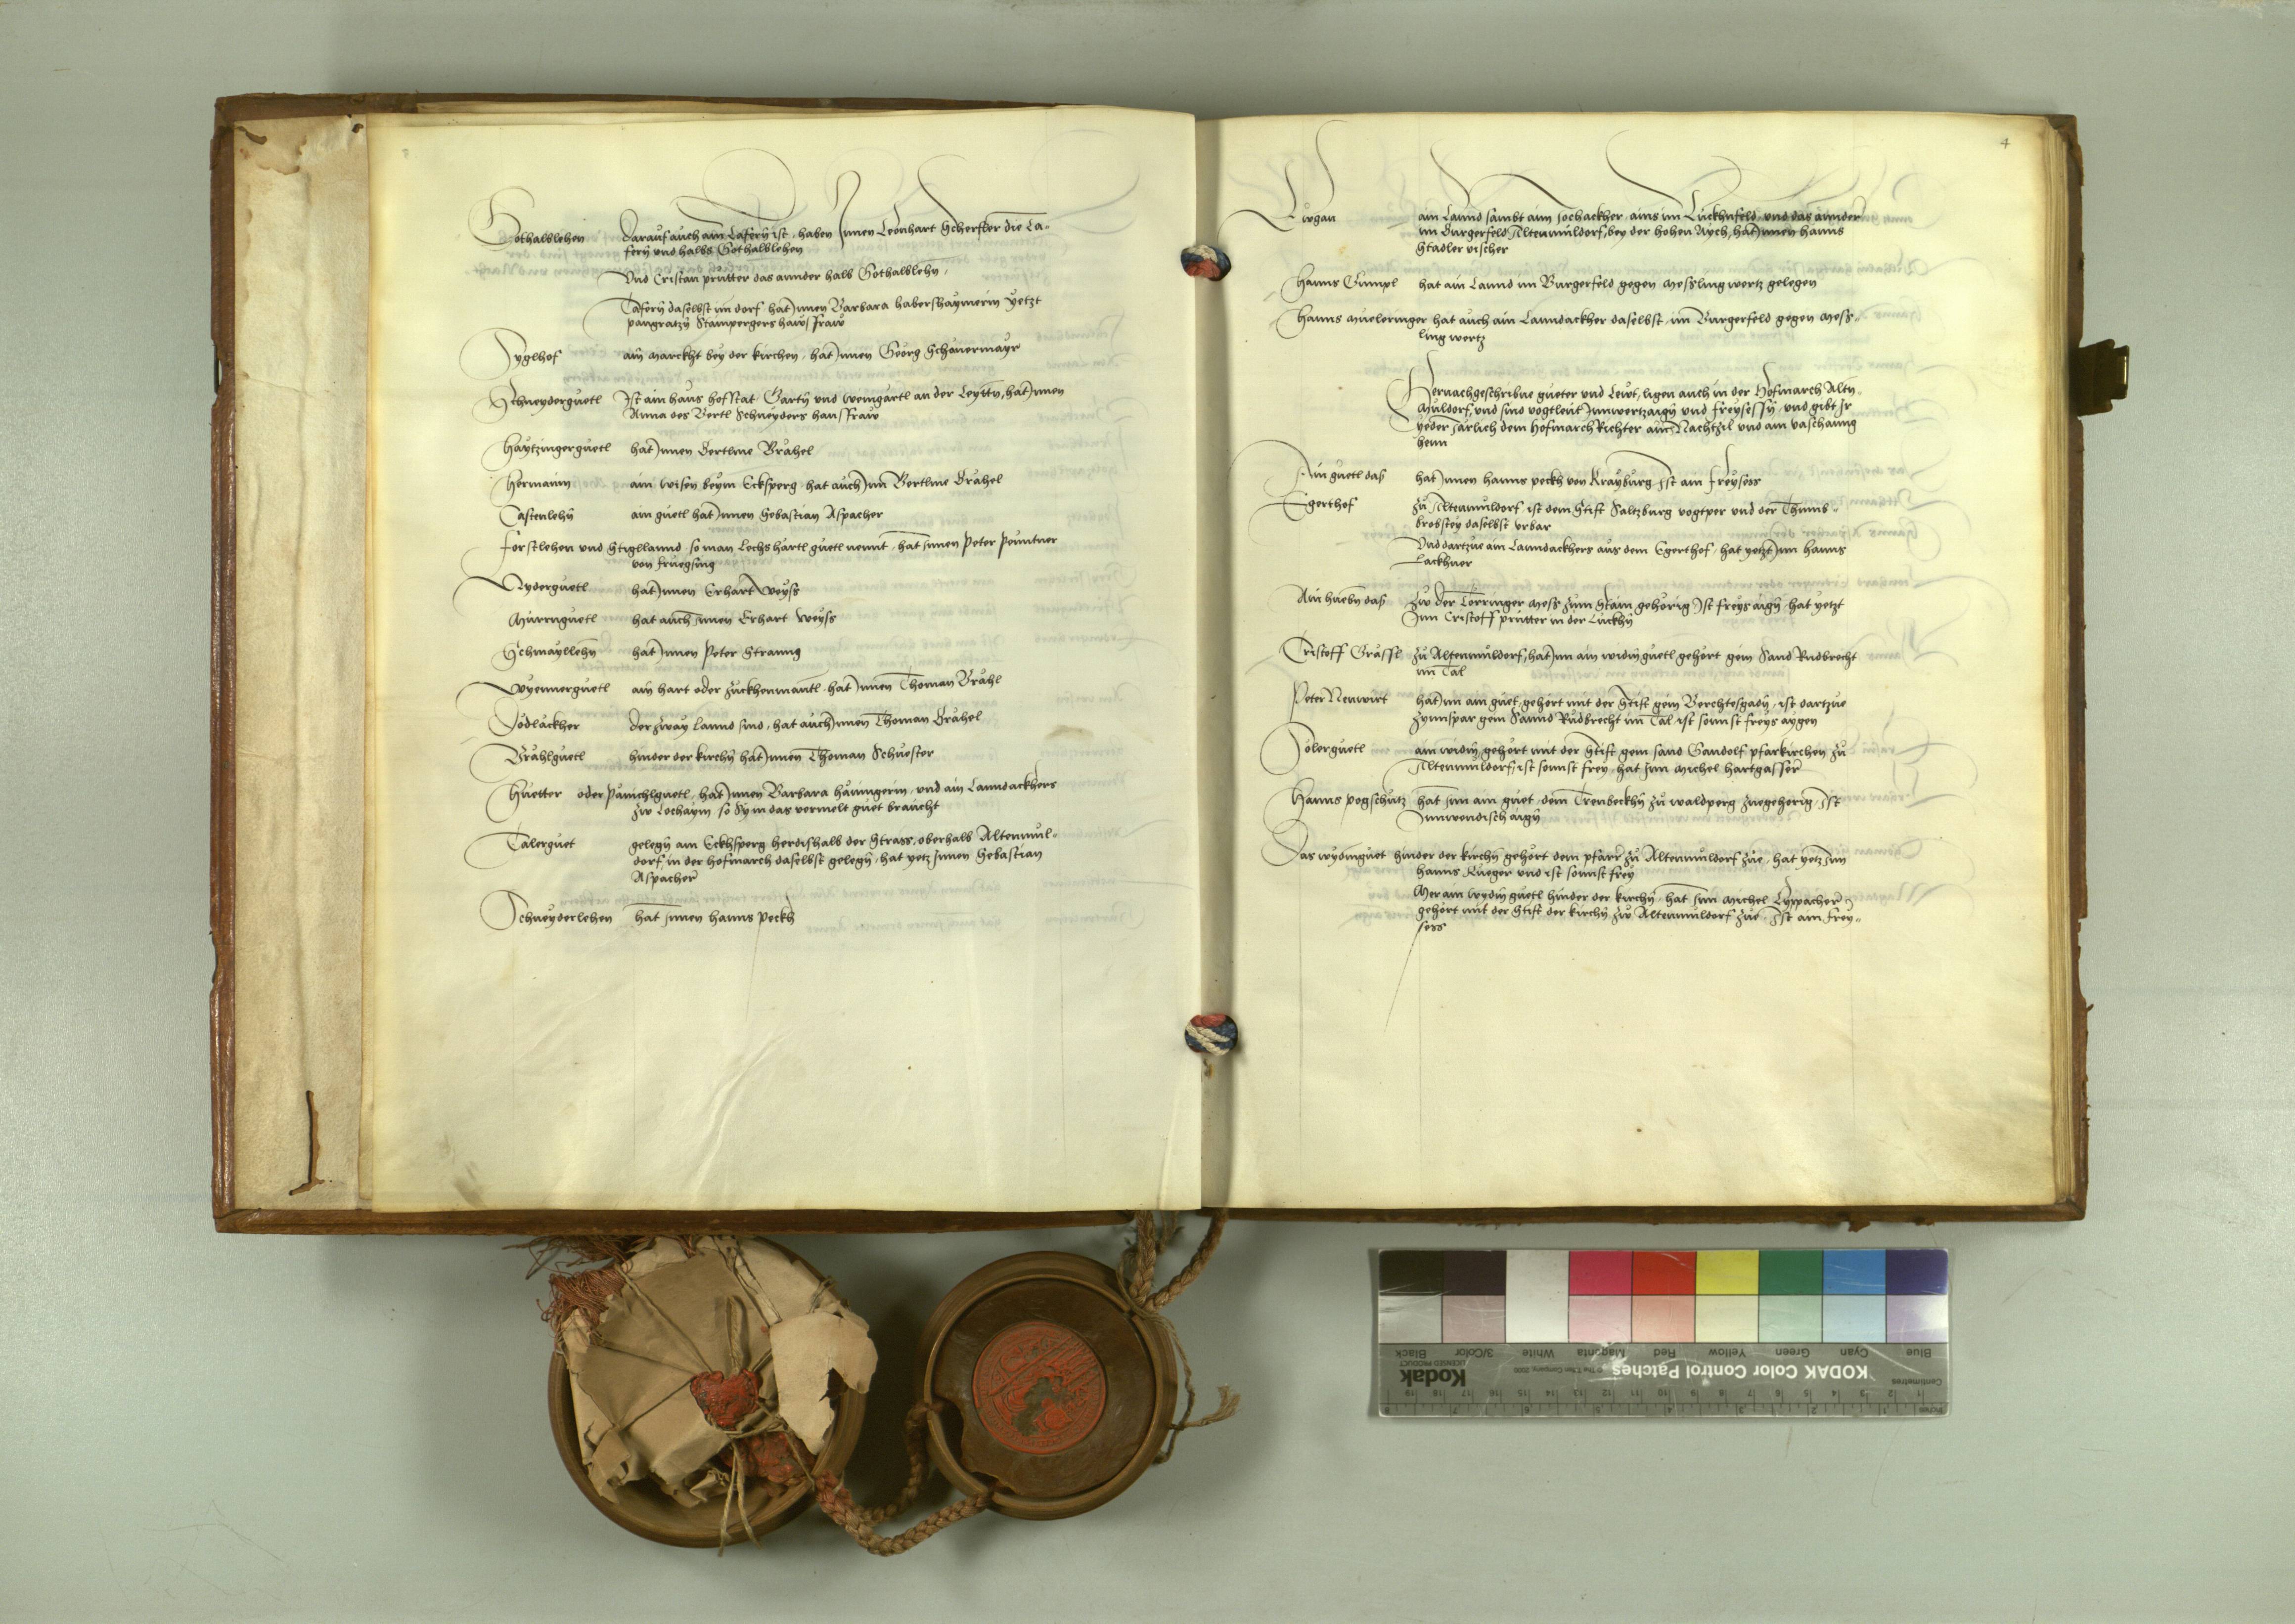 Gothalblehen darauf auch ain Tafern ist, haben Innen Leonhart Scherffter die Ta-
fern und halbs Gothalblehen
Und Cristan prütter das annder halb Gothalblehn,
Tafern daselbst im dorf hat Innen Barbara haberhaymerin yetzt
pangratzn Stampergers hawsfraw
Syglhof am marckht bey der kirchen, hat Innen Georg Schauermayr
Schneyderguetl Ist ain haus hofstat Gartn und weingartl an der Leyttn, hat Innen
Anna des Bertl Schneyders hausfraw
Haytzingerguetl hat Innen Bertlme Brähel
Hermann ain wisen beym Ecksperg hat auch Inn Bertlme Brähel
Castenlehn ain guetl hat Innen Sebastian Aspacher
Forstlehen und Stigllannd so man Lochshartl guetl nennt, hat Innen Peter Peuntner
von fruegsing
Nyderguetl hat Innen Erhart Weyss
Murrnguetl hat auch Innen Erhart Weyss
Schmayllehn hat Innen Peter Strannz
Wyennerguetl ain hart oder zuckhenmantl hat Innen Thoman Brähl
Ödläckher der zway lannd sind, hat auch Innen Thoman Brähel
Brählguetl hinder der kirchn hat Innen Thoman Schuester
Huetter oder Pämchlguetl, hat Innen Barbara häningerin, und ain Lanndackhers
zw Lochaym so Sy in das vermelt guet braucht
Talerguet gelegn am Eckhsperg herdishalb der Strass, oberhalb Altenmül-
dorf in der hofmarch daselbst gelegn, hat yetz Innen Sebastian
Aspacher
Schneyderlehen hat Innen hanns peckh
4
ain Lannd sambt aim Jochackher, ains im Luckhnfeld, und das annder
im Burgerfeld Altenmüldorf, bey der hohen Aych, hat Innen hanns
Stadler vischer
Hanns Gumpl hat ain Lannd im Burgerfeld gegen Messling wertz gelegen
Hanns Mueleringer hat auch ain Lanndackher daselbst im Burgerfeld gegen Mess-
ling wertz
Hernachgeschribne gueter und Lewt, ligen auch in der Hofmarch Altn
Müldorf, und sind vogtleüt Innwertzaign und freysessn, und gibt Ir
yeder Järlich dem Hofmarch Richter ain Nachtzil und ain vaschanng
henn
Ain guetl das hat Innen hanns peckh von Krayburg Ist ain freysess
Egerthof zu Altenmüldorf ist dem Stift Saltzburg vogtper und der Thumb-
brobstey daselbst urbar
Und dartzue ain Lanndackhers aus dem Egerthof, hat yetzt Inn hanns
Lackhner
Ain huebn das zw der Törringer Mess zum Stain gehörig Ist freys aign, hat yetzt
Inn Cristoff prütter in der Luckhn
Cristoff Grässl zu Altenmüldorf, hat Inn ain widnguetl gehört gein Sand Rudbrecht
im Tal
Peter Newwirt hat Inn ain guet, gehört mit der Stift gein Berchtesgadn, ist dartzue
zynnspar gein Sannd Rudbrecht im Tal ist sonnst freys aygen
Solerguetl ain widn, gehört mit der Stift gein sand Gandolf pfarkirchen zu
Altenmüldorf, ist sonnst frey, hat Inn Michel hartgasser
Hanns pogschütz hat Inn ain guet, dem Trenbeckhn zu waldperg zuegehörig, Ist
Innwendisch aign
Das wydnguet hinder der kirchn gehört dem pfarrer zu Altenmüldorf zue, hat yetz Inn
hanns Rueger und ist sonnst frey
Mer ain wydn guetl hinder der kirchn, hat Inn Michel Lyppacher
gehört mit der Stift der kirchn zw Altenmüldorf zue, Ist ain frey-
sess
Inches 1 2 3 4 5 6 7 8
Centimetres 1 2 3 4 5 6 7 8 9 10 11 12 13 14 15 16 17 18 19
KODAK Color Control Patches © The Tiffen Company, 2000 Kodak
LICENSED PRODUCT
Blue Cyan Green Yellow Red Magenta White 3/Color Black